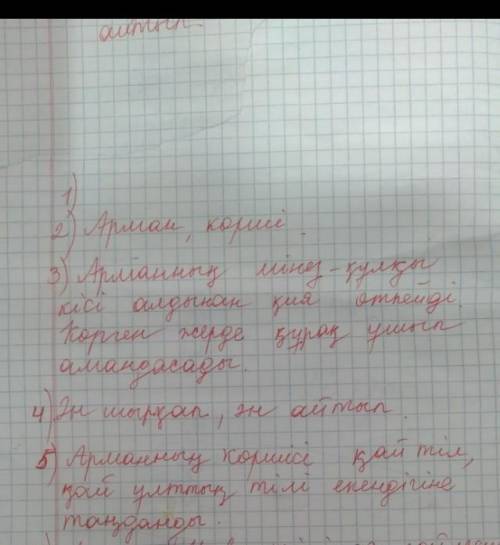 айтып
1)
2) Арман, көрші.
3) Арманның мінез-құлқы
кісі алдынан қия өтпейді.
Көрген жерде құрақ ұшып
амандасады.
4) Ән шырқап, ән айтып.
5) Арманның көршісі қай тіл,
қай ұлттың тілі екендігіне
таңданды.